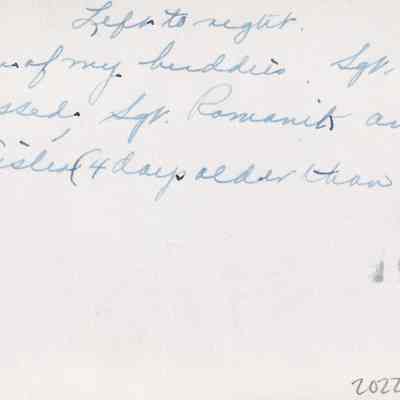 Left to right.
of my buddies. Sgt.
ssed, Sgt. Romanik an
(4 days older than
2022